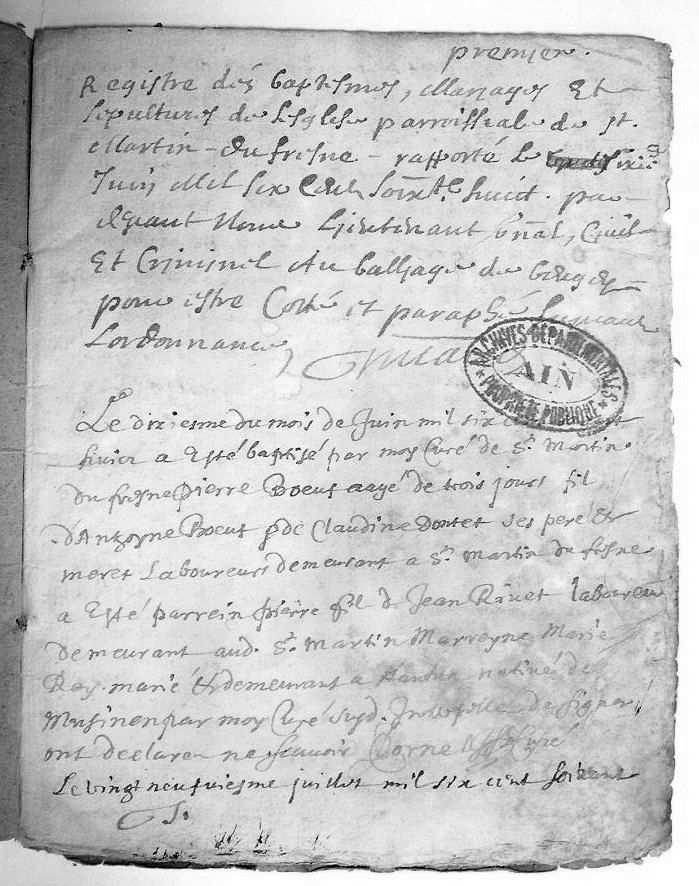 premier.
Registre des baptesmes, Mariages Et
sepultures de l'Esglise parroissiale de st.
Martin - du fresne - raporté le
Juin Mil six Cent soixte. huict. par
devant Nous Lieutenant gnal, Civil
Et Criminel Au balliage de bugey
pour estre Cotté et paraphé suivant
Lordonnance
ARCHIVES DÉPARTEMENTALES
AIN
PROPRIÉTÉ PUBLIQUE
Le dixiesme du mois de Juin mil six
huict a Esté baptisé par moy Curé de St. Martin
du fresne pierre Boeuf aagé de trois jours fil
d'Anthoyne Boeuf & de Claudine ses pere Et
mere Laboureurs demeurant a St. Martin du fresne
a Esté parrein pierre fil de Jean Ravet laboureur
demeurant aud. St. Martin Marreyne Marie
Rey. marié & demeurant a Nantua native de
par moy Curé de signer
ont declarer ne scavoir Curé
Le vingt neufviesme juillet mil six cent soixant